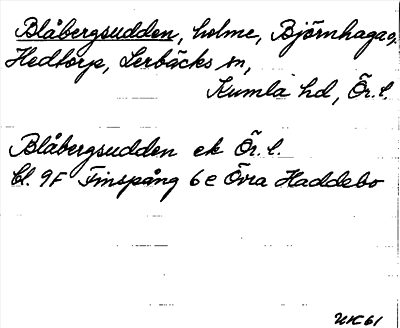 Blåbergsudden, holme, Björnhaga o.
Hedtorp, Lerbäcks sn,
Kumla hd, Ör. l.
Blåbergsudden ek Ör. l.
Bl. 9F Finspång 6 e Övra Haddebo
UK 61